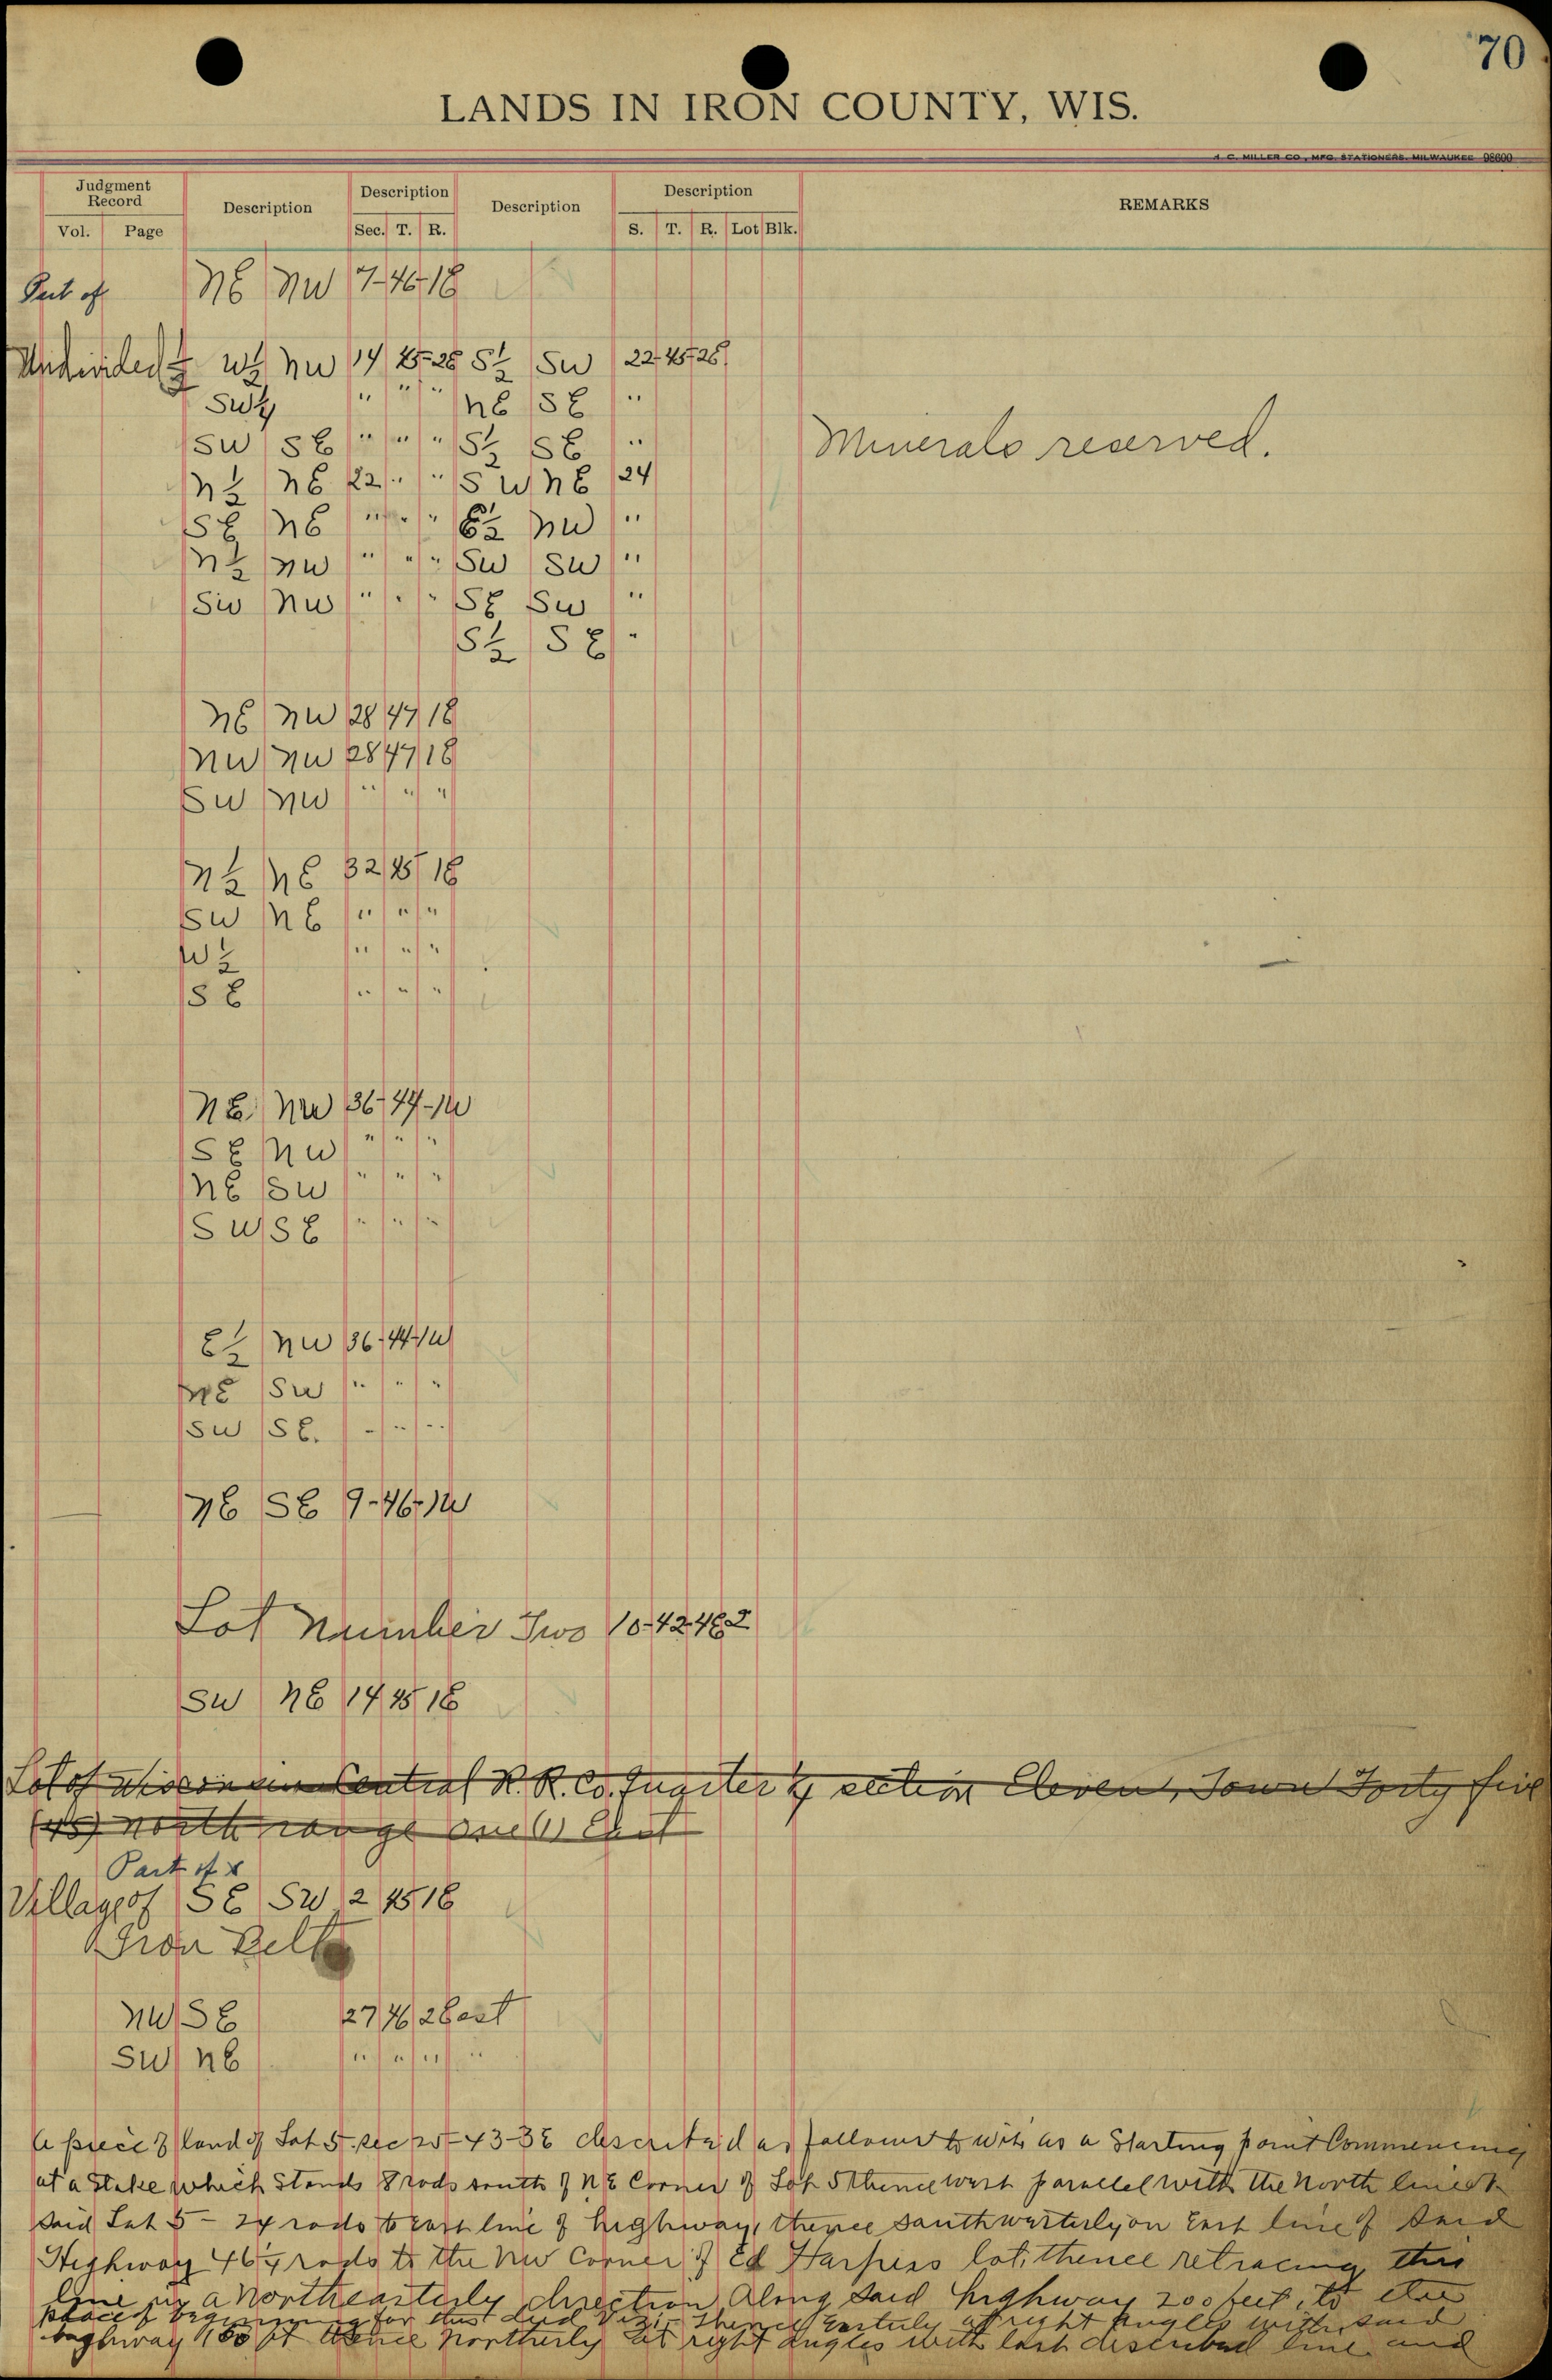 70
LANDS IN IRON COUNTY, WIS.
H. C. MILLER CO., MFG. STATIONERS, MILWAUKEE 98600
Judgment Record Description Description Description Description REMARKS
Vol. Page Sec. T. R. S. T. R. Lot Blk.
Part of NE NW 7-46-1E
Undivided ½ W½ NW 14 45-2E S½ SW 22-45-2E
SW¼ " " " NE SE "
SW SE " " " S½ SE "
Minerals reserved.
N½ NE 22 " " SW NE 24
SE NE " " " E½ NW "
N½ NW " " " SW SW "
SW NW " " " SE SW "
S½ SE "
NE NW 28 47 1E
NW NW 28 47 1E
SW NW " " "
N½ NE 32 45 1E
SW NE " " "
W½ " " "
SE " " "
NE NW 36-44-1W
SE NW " " "
NE SW " " "
SW SE " " "
E½ NW 36-44-1W
NE SW " " "
SW SE. " " "
NE SE 9-46-1W
Lot Number Two 10-42-4E 2
SW NE 14 45 1E
Lot of Wisconsin Central R.R. Co. Quarter of section Eleven, Town Forty five
(45) North range one (1) East
Part of x
Village of SE SW 2 45 1E
Iron Belt
NW SE 27 46 2 East
SW NE " " " "
A piece of land of Lot 5 sec 25-43-3E described as follows to wit: as a Starting point Commencing
at a Stake which Stands 8 rods south of NE Corner of Lot 5 thence west parallel with the North line of
said Lot 5 - 24 rods to east line of highway, thence southwesterly on East line of said
Highway 46¼ rods to the NW Corner of Ed Harpers lot, thence retracing this
line in a Northeasterly direction Along said highway 200 feet, to the
place of beginning for this deed Viz:- thence Easterly at right Angles with said
highway 150 ft thence Northerly at right angles with last described line and